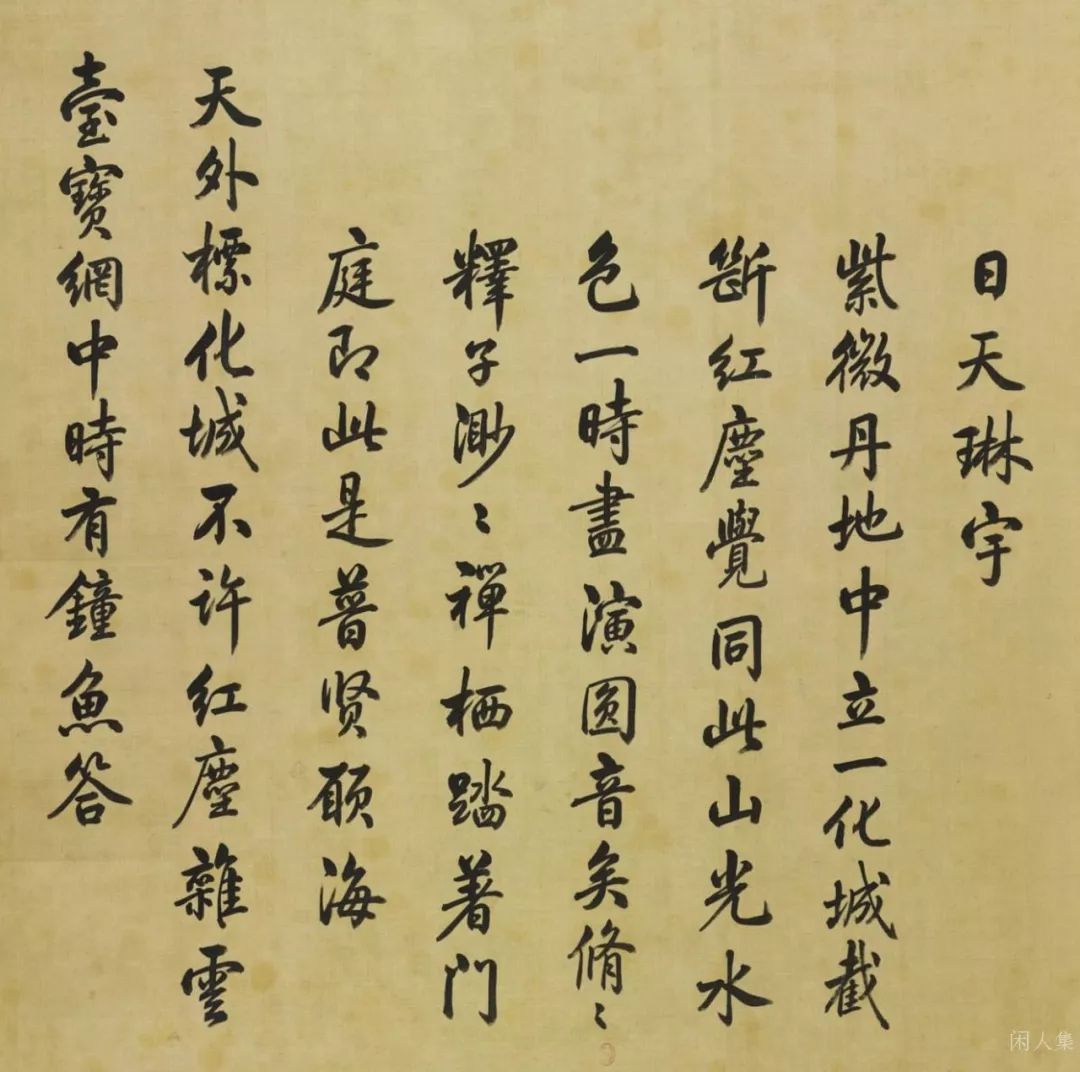 日天琳宇
紫微丹地中立一化城截
斷紅塵覺同此山光水
色一時盡演圓音矣脩〻
釋子渺〻禪栖踏著門
庭即此是普賢願海
天外標化城不許紅塵雜雲
臺寶網中時有鐘魚答
闲人集